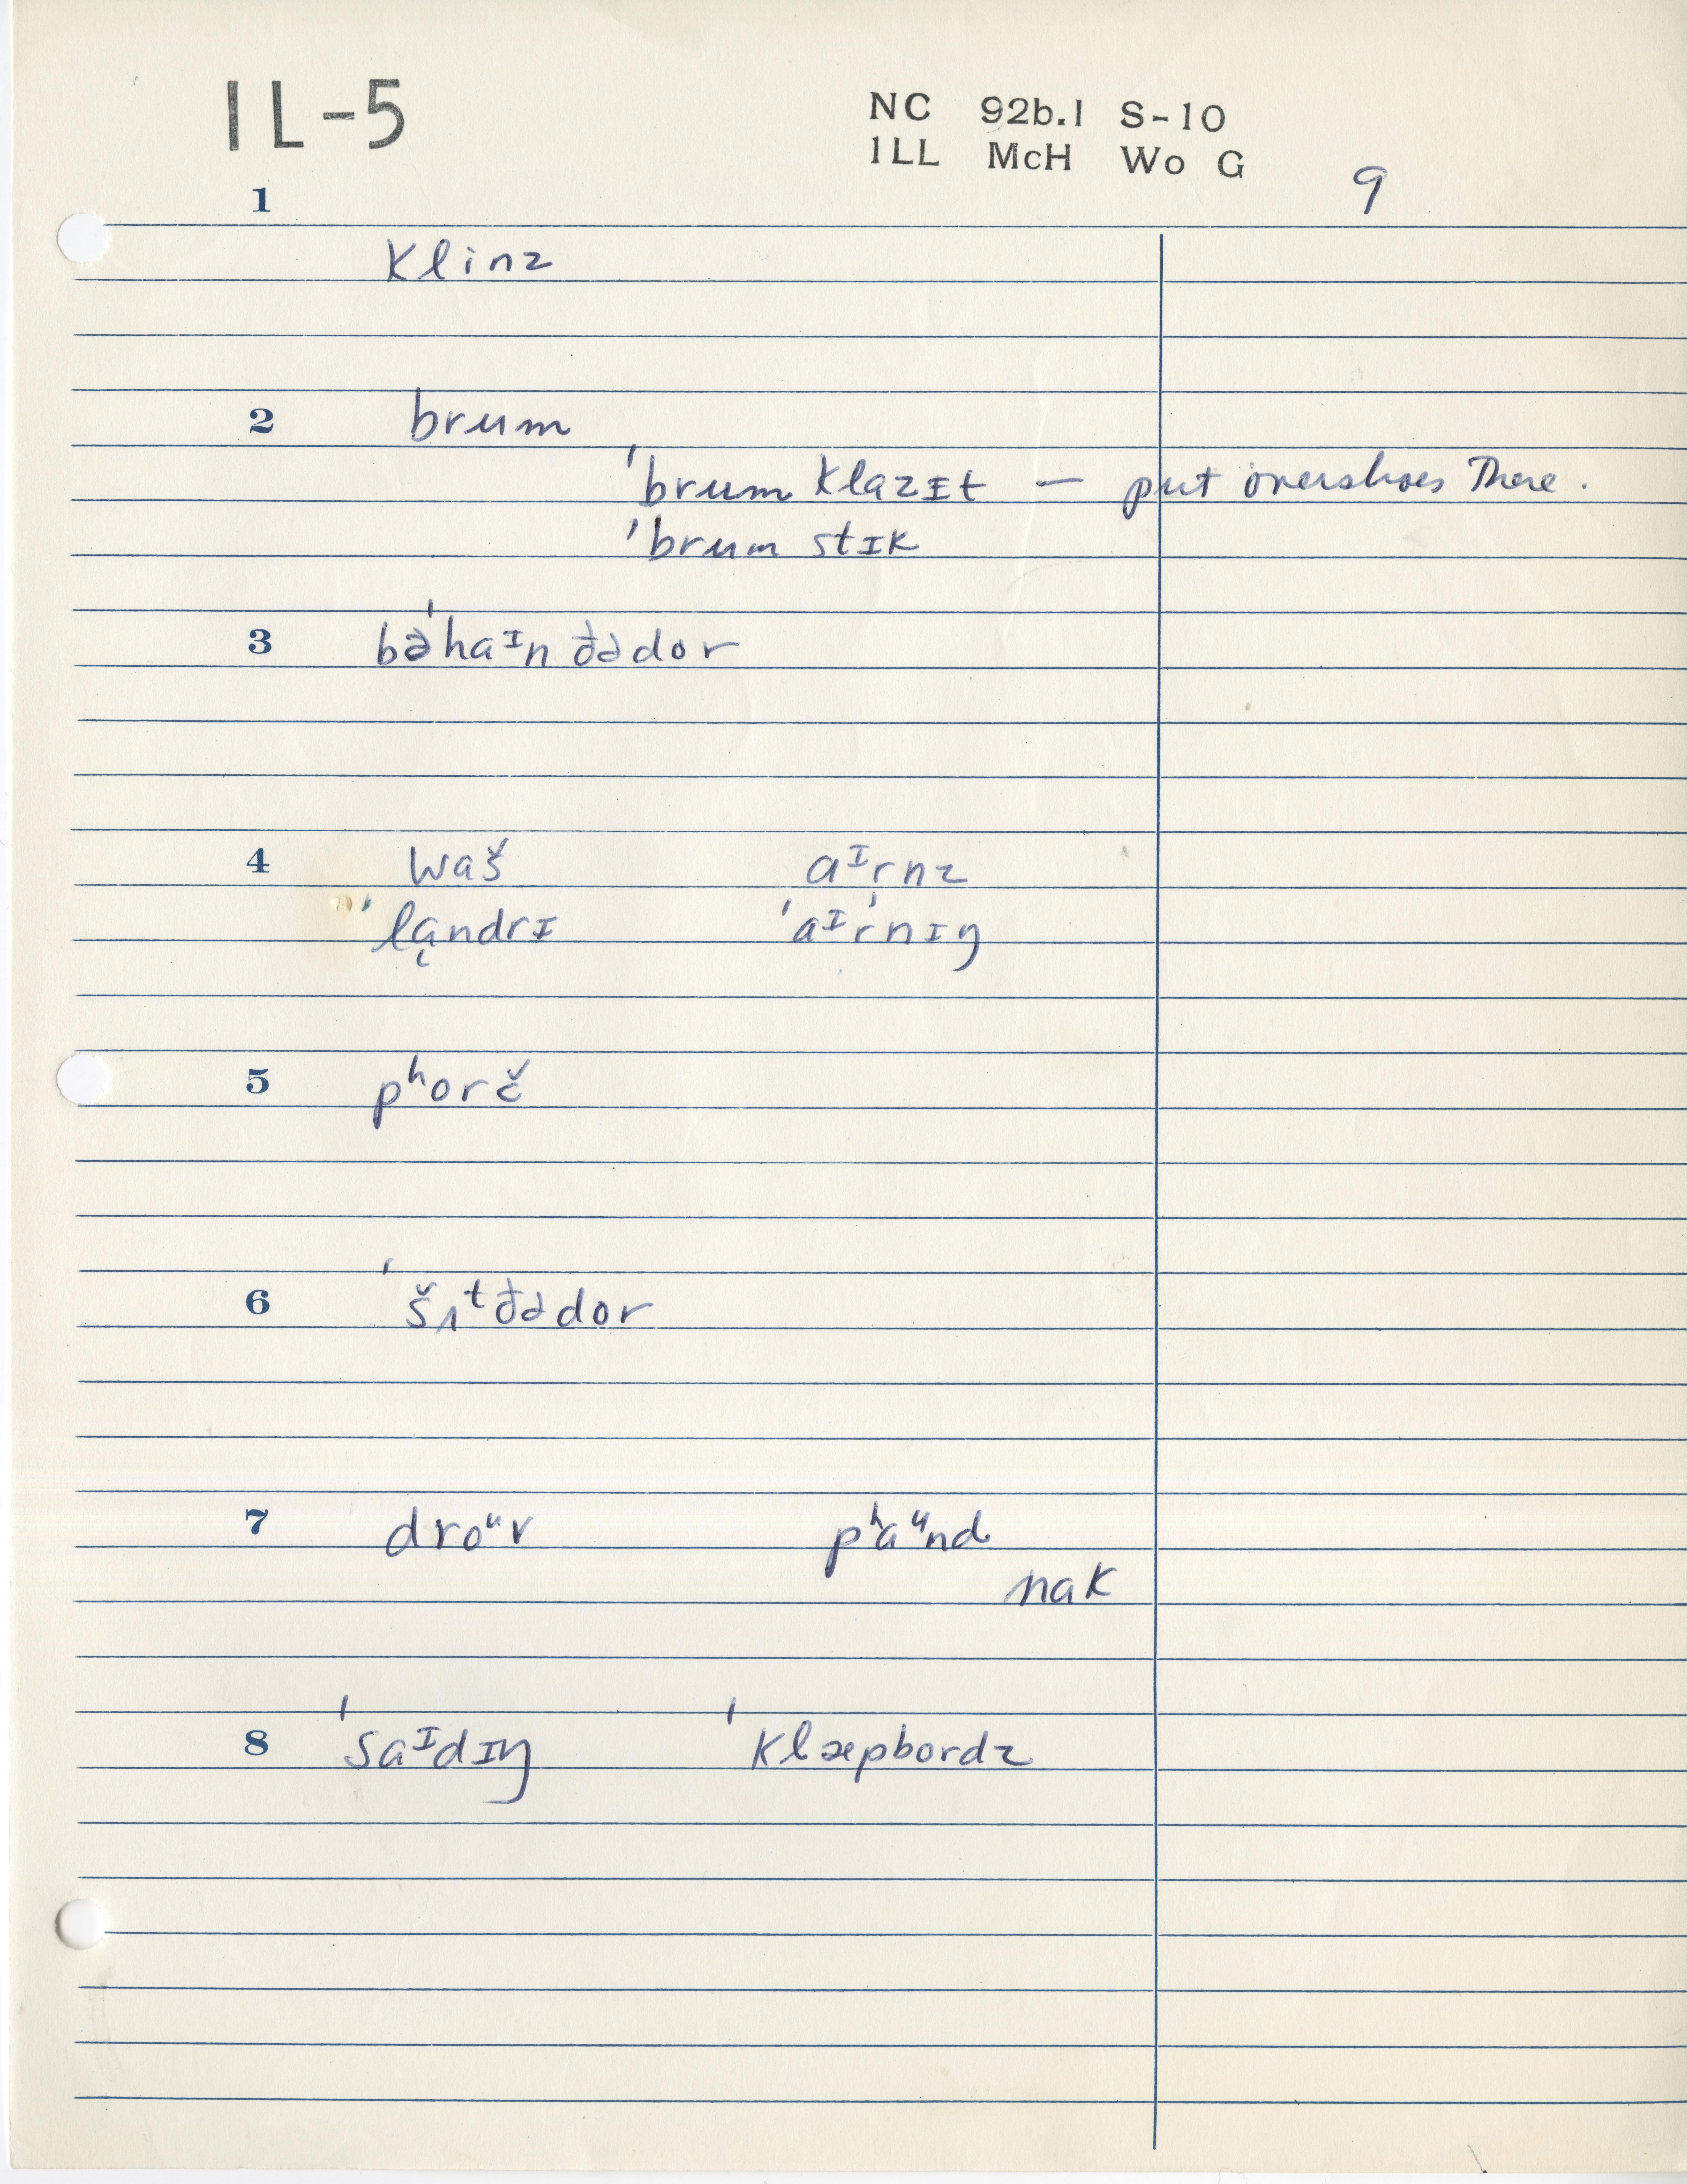 IL-5
NC 92b.1 S-10
ILL McH Wo G
9
1
klinz
2 brum
ˈbrum klazɪt — put overshoes There.
ˈbrum stɪk
3 bəˈhaᴵn ðə dor
4 waš aᴵrnz
ˈlɑ̨ndrɪ ˈaᴵr̩nɪŋ
5 pʰorč
6 ˈšʌᵗðədor
7 droᵘr pʰaᵘnd
nak
8 ˈsaᴵdɪŋ ˈklæpbordz